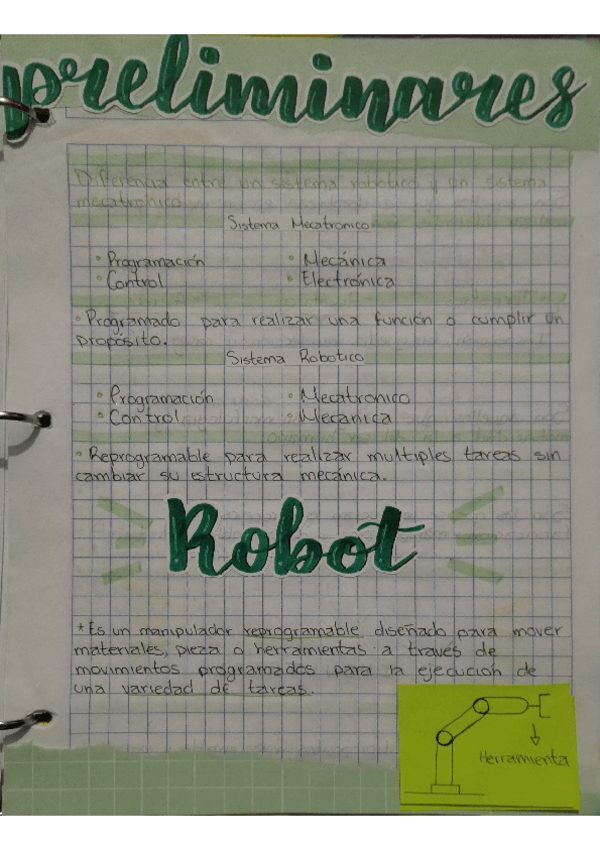 preliminares
Diferencia entre un sistema robotico y un sistema
mecatronico
Sistema Mecatronico
• Programación • Mecánica
• Control • Electrónica
• Programado para realizar una función o cumplir un
propósito.
Sistema Robotico
• Programación • Mecatronico
• Control • Mecanica
• Reprogramable para realizar multiples tareas sin
cambiar su estructura mecánica.
Robot
* Es un manipulador reprogramable diseñado para mover
materiales, pieza o herramientas a través de
movimientos programados para la ejecución de
una variedad de tareas.
Herramienta